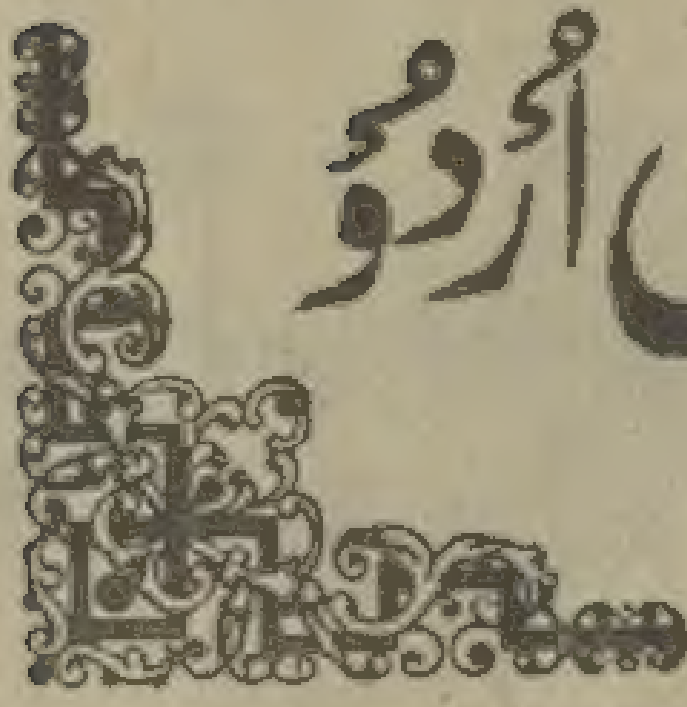 اُردُو